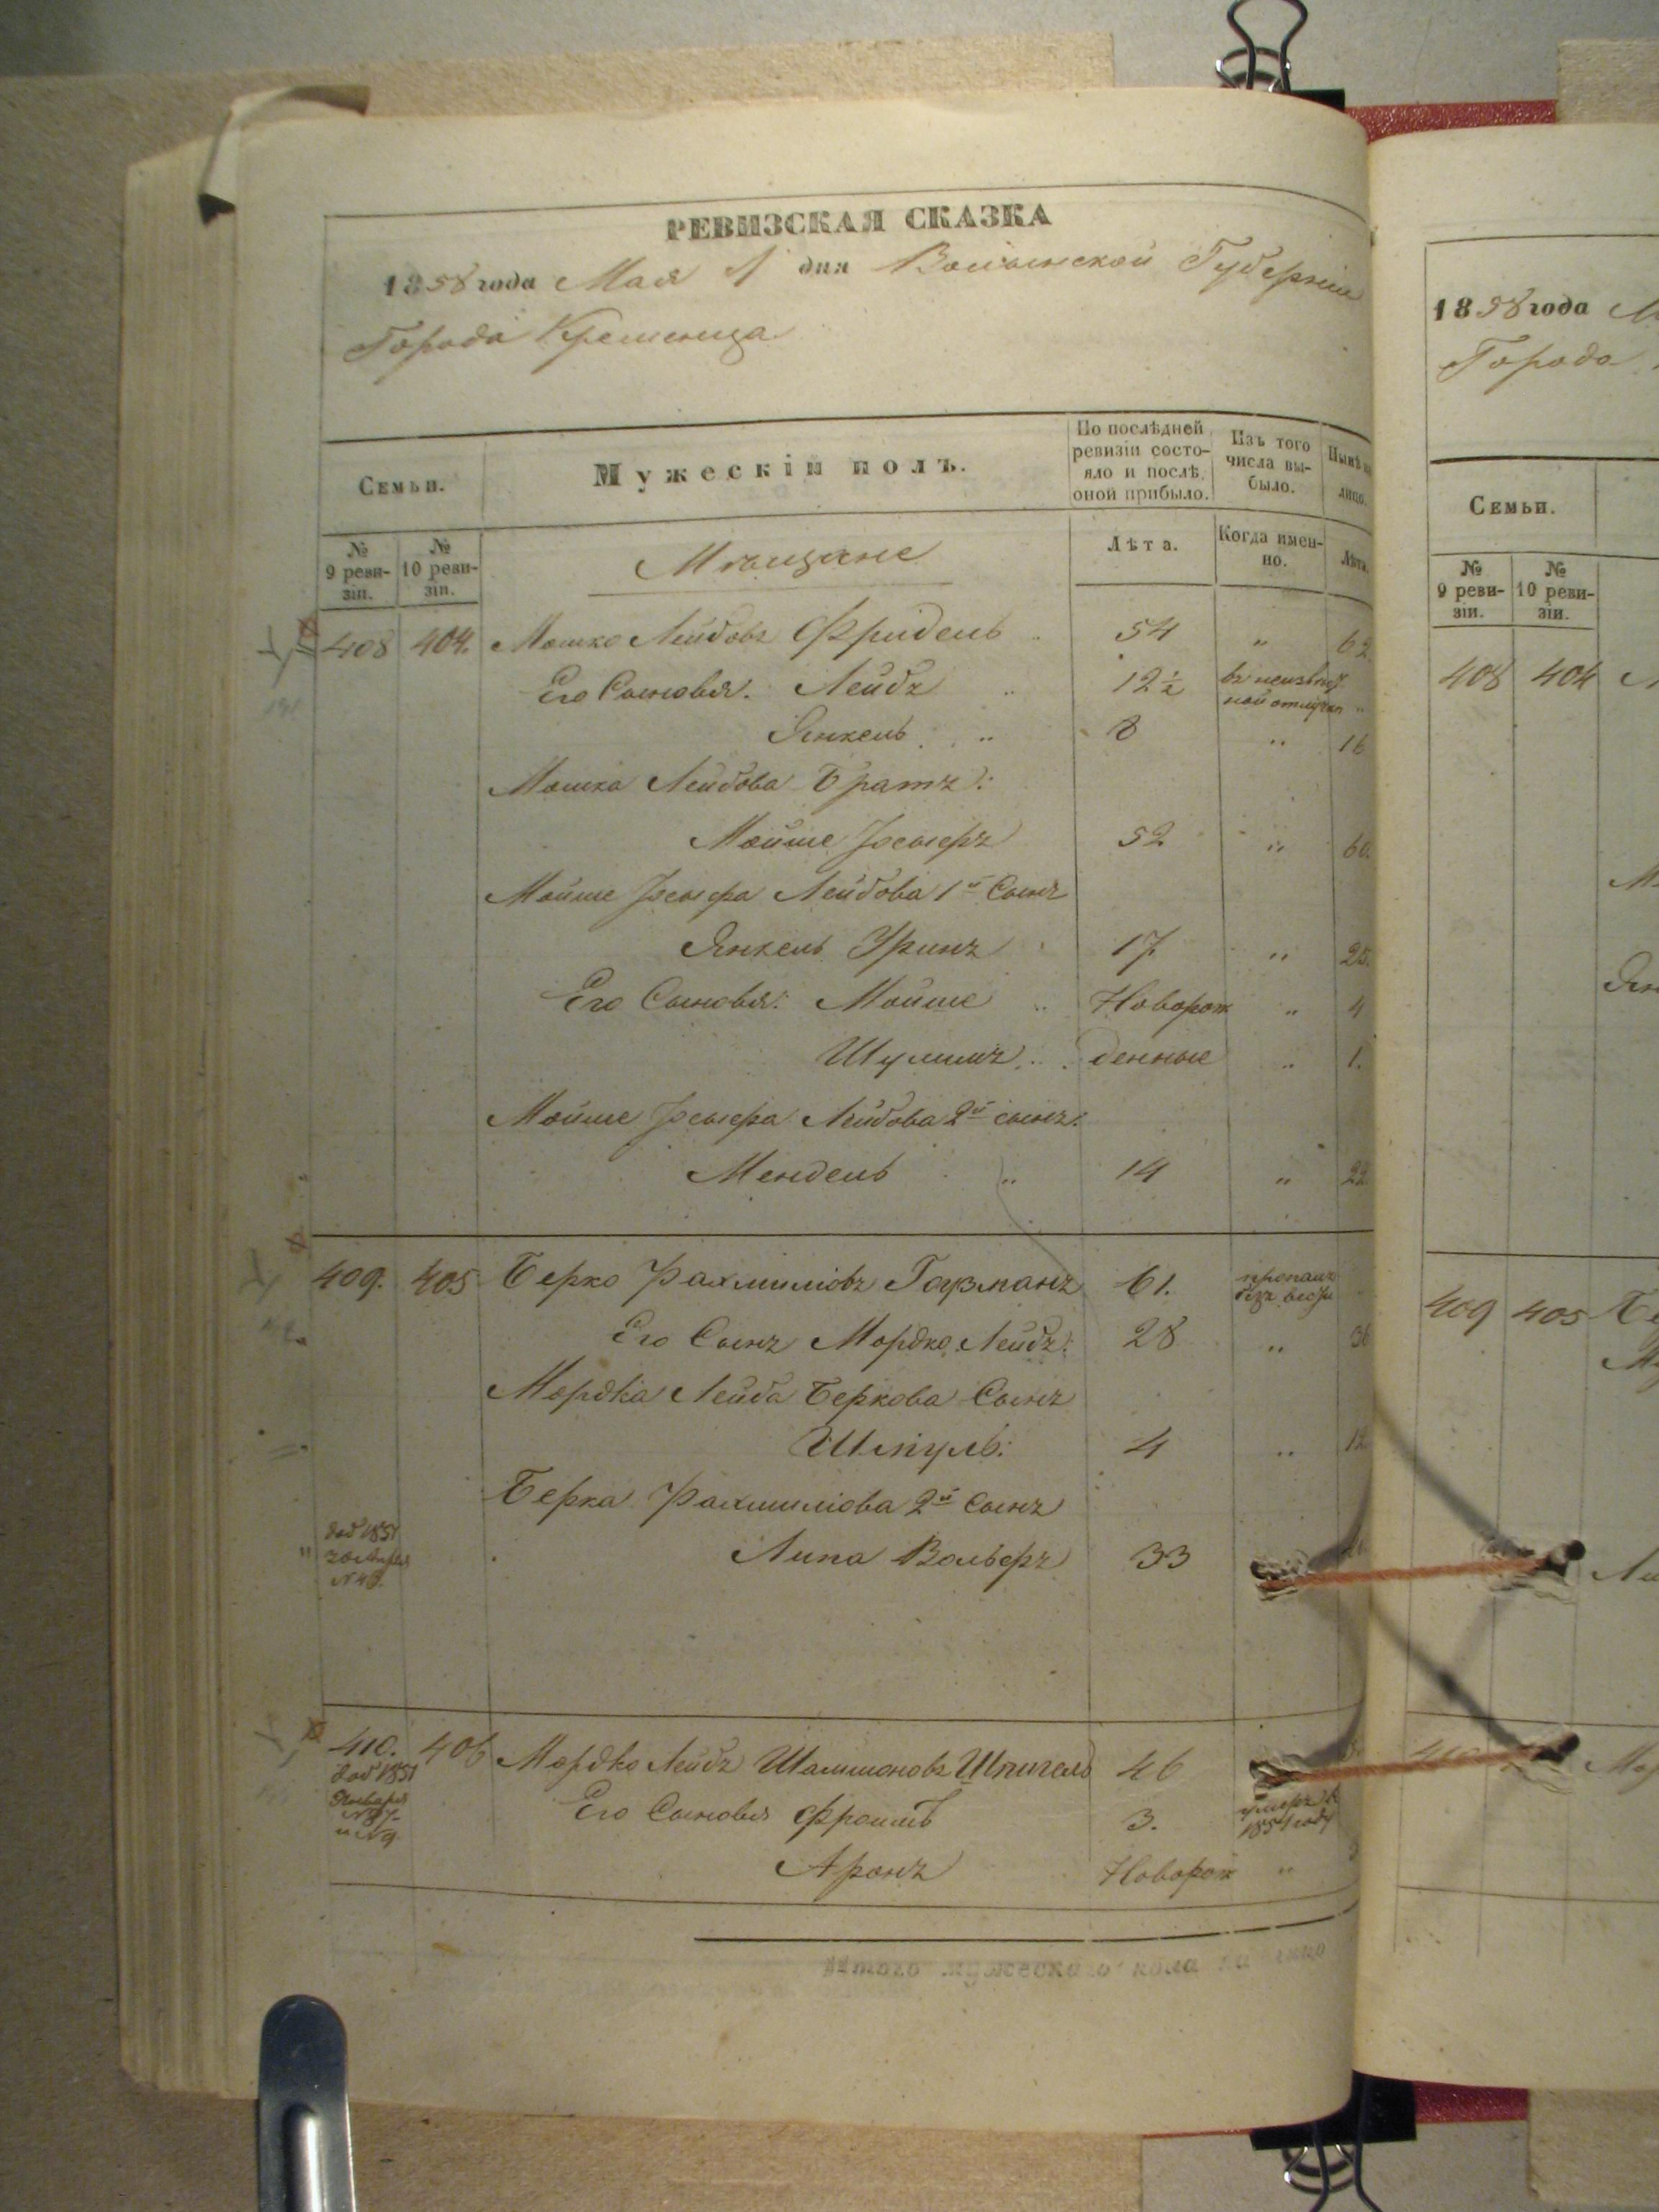 РЕВИЗСКАЯ СКАЗКА
1858 года Мая 1 дня Волынской Губерніи
Города Кременца
Семьи.
Мужескій полъ.
По послѣдней ревизіи состояло и послѣ оной прибыло.
Изъ того числа выбыло.
Нынѣ на лицо.
№ 9 ревизіи.
№ 10 ревизіи.
Мѣщане
Лѣта.
Когда именно.
Лѣта.
408 404. Мошко Лейбовъ Фридель 54 " 62
Его Сыновья: Лейбъ 12½ въ неизвѣстной отлучкѣ "
Янкель 8 " 16
Мошка Лейбова Братъ:
Мойше 52 " 60.
Мойше Лейбова 1й Сынъ
Янкель 17. " 25.
Его Сыновья: Мойше Новорож " 4
Шулимъ денные " 1.
Мойше Лейбова 2й сынъ:
Мендель " 14 " 22.
409. 405 Берко Рахмиліовъ Гаузманъ 61. пропалъ безъ вѣсти
Его Сынъ Мордко Лейбъ: 28 " 36
Мордка Лейба Беркова Сынъ
Шмуль: 4 " 12
Берка Рахмиліова 2й Сынъ
доб 1851
N 43.
Липа Вольфъ 33
410. 406 Мордко Лейбъ Шпигель 46
доб 1851
Января
и N 9
Его Сыновья Фроимъ 3. умеръ въ 1854 году
Аронъ Новорож "
Итого мужескаго пола на лицо
1858 года
Города
Семьи.
№ 9 ревизіи.
№ 10 ревизіи.
408 404
409 405